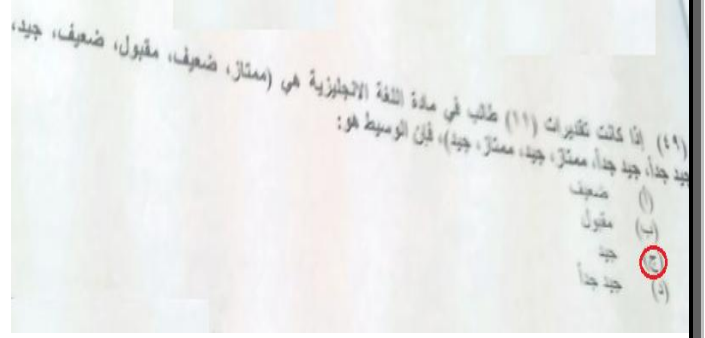 (٤٩) إذا كانت تقديرات (١١) طالب في مادة اللغة الانجليزية هي (ممتاز، ضعيف، مقبول، ضعيف، جيد،
جيد جداً، جيد جداً، ممتاز، جيد، ممتاز، جيد)، فإن الوسيط هو:
(أ) ضعيف
(ب) مقبول
(ج) جيد
(د) جيد جداً